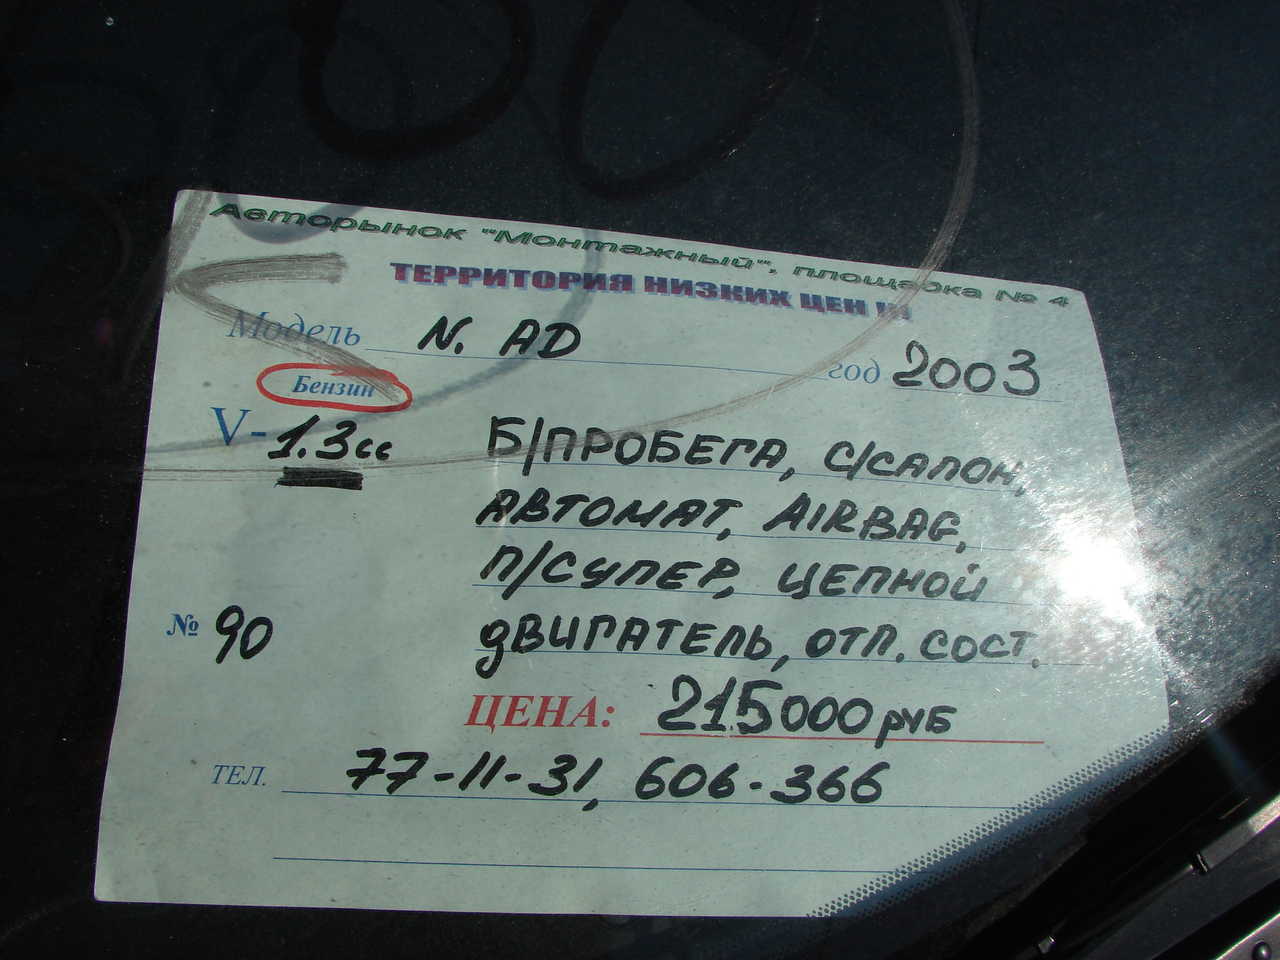 Авторынок "Монтажный", площадка № 4
ТЕРРИТОРИЯ НИЗКИХ ЦЕН !!!
Модель N. AD год 2003
Бензин
V- 1.3 сс Б/ПРОБЕГА, С/САЛОН,
АВТОМАТ, AIRBAG,
П/СУПЕР, ЦЕПНОЙ
№ 90 ДВИГАТЕЛЬ, ОТЛ. СОСТ.
ЦЕНА: 215000 руб
ТЕЛ. 77-11-31, 606-366